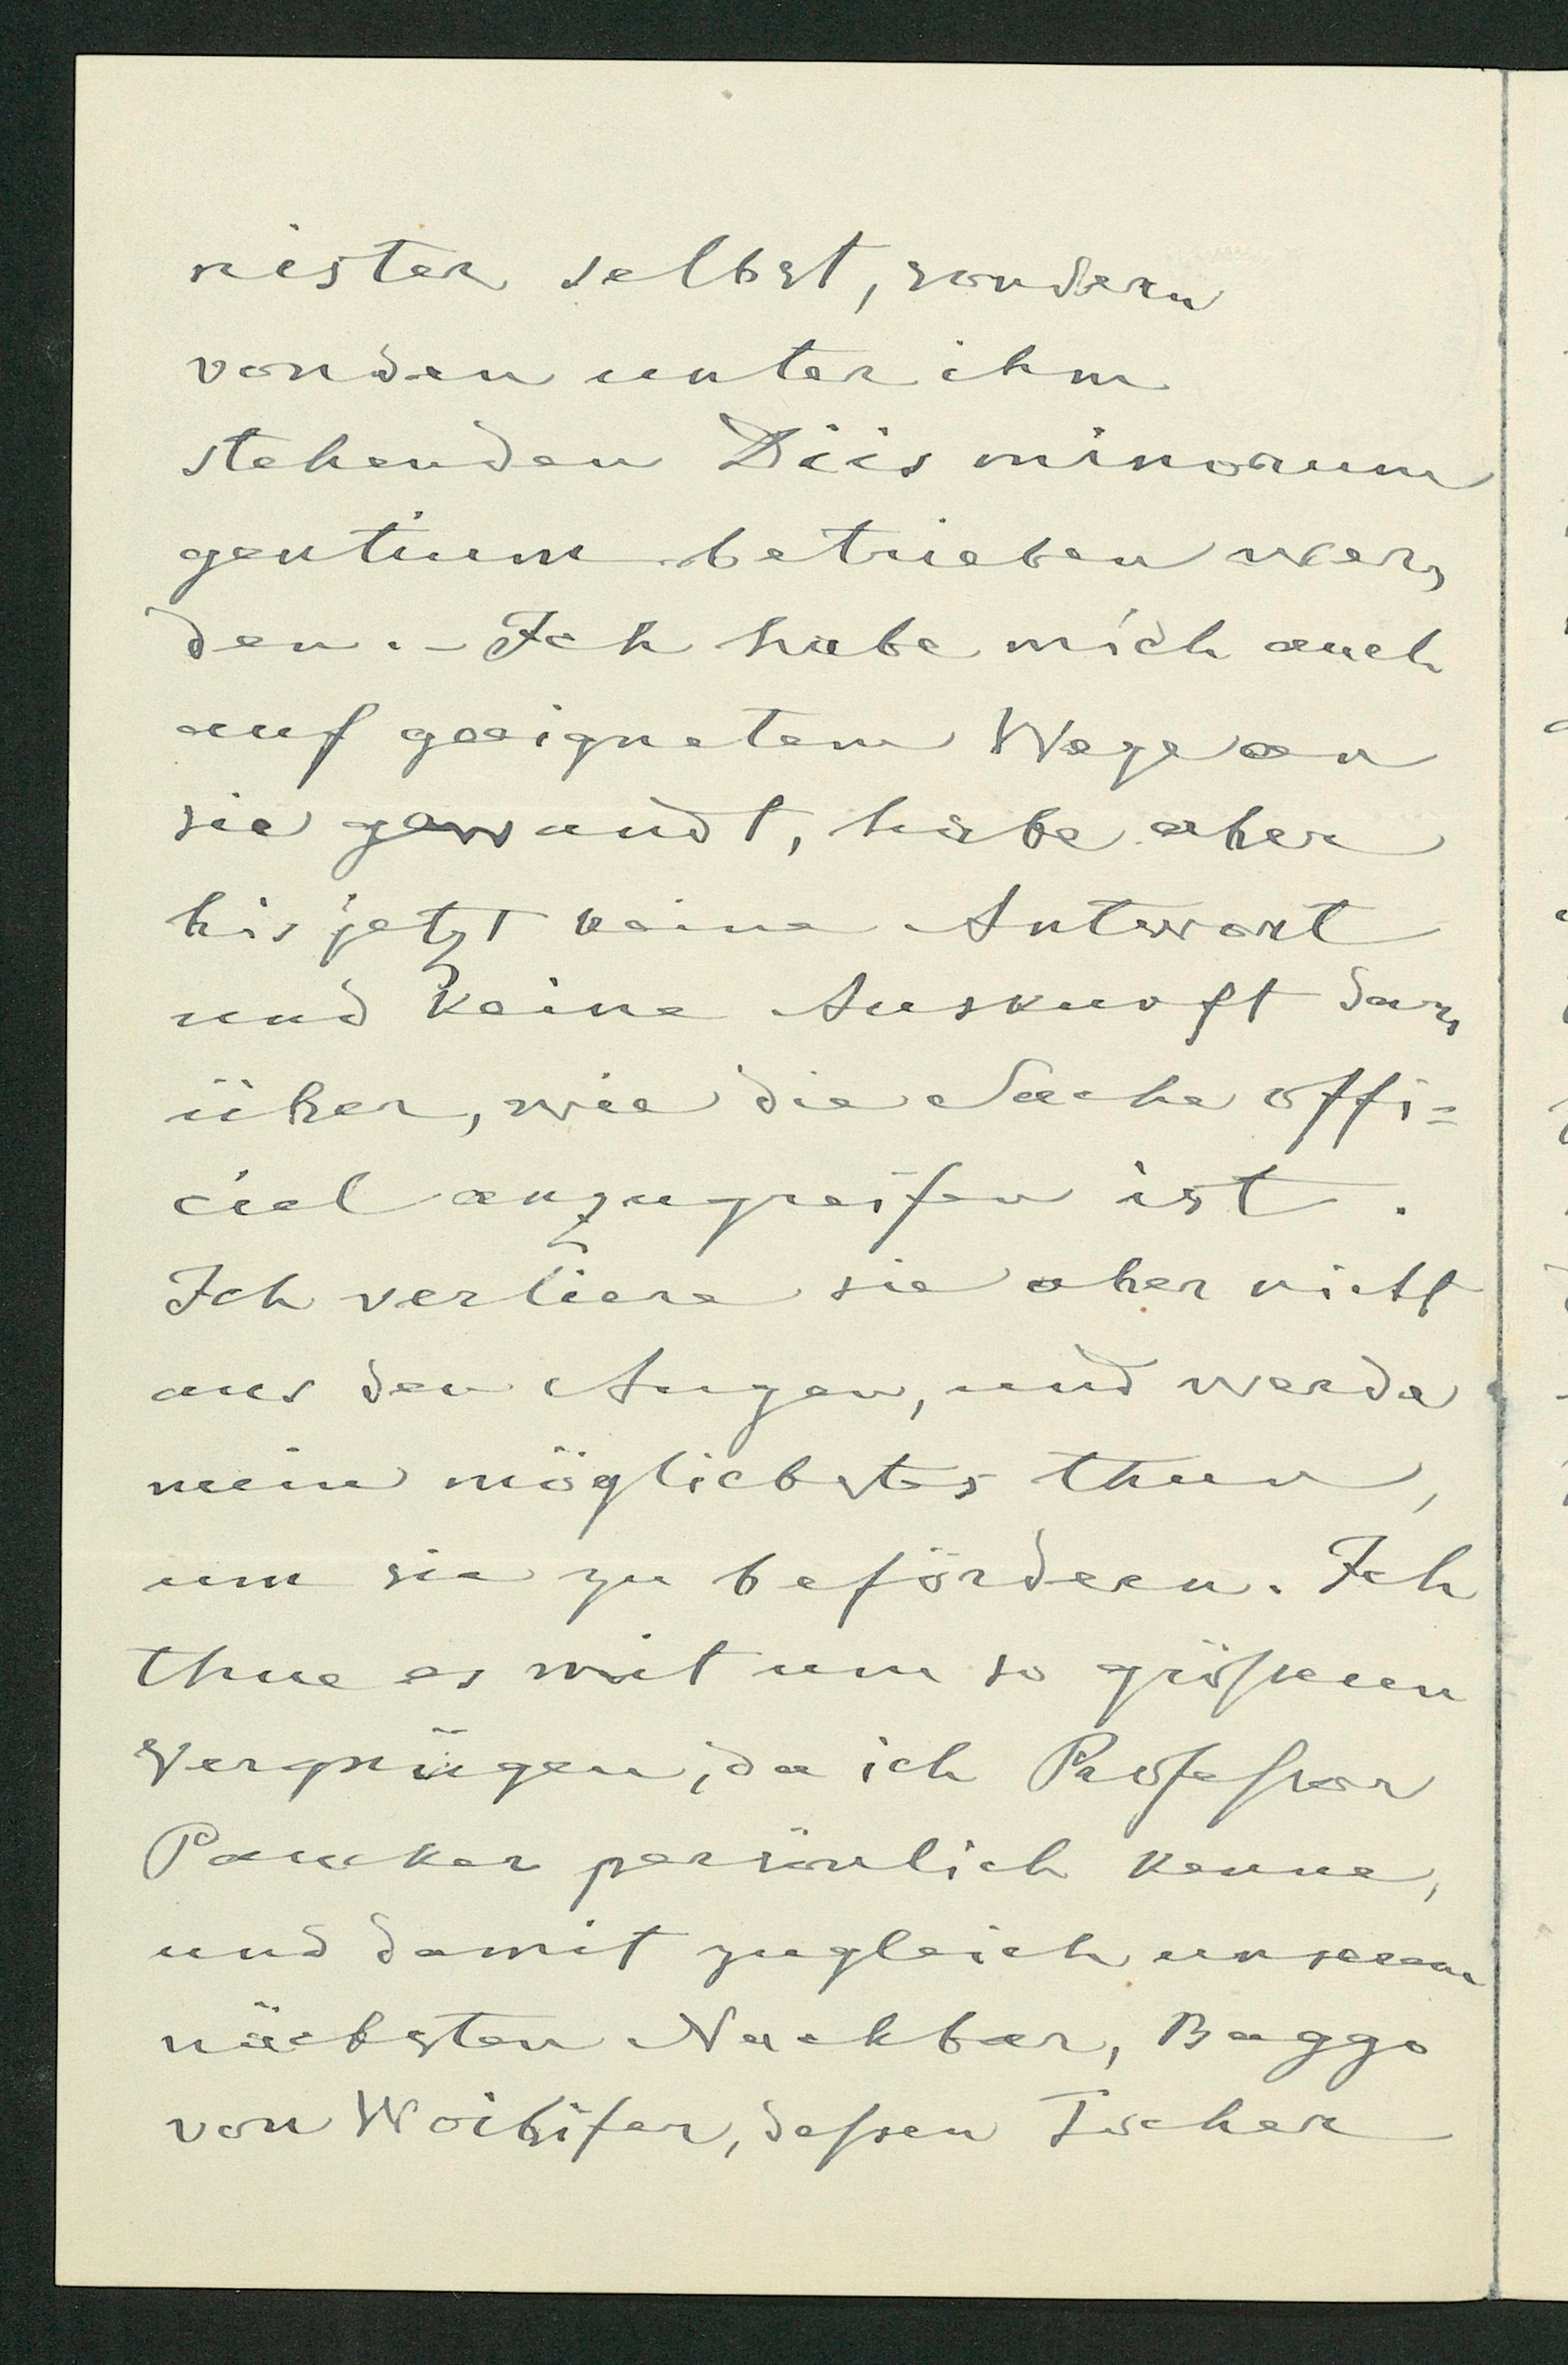 nister selbst, sondern
von den unter ihm
stehenden Diis minorum
gentium betrieben wer,
den. – Ich habe mich auch
auf geeignetem Wege an
sie gewandt, habe aber
bis jetzt keine Antwort
und keine Auskunft dar,
über, wie die Sache offi=
ciel anzugreifen ist.
Ich verliere sie aber nicht
aus den Augen, und werde
mein möglichstes thun,
um sie zu befördern. Ich
thue es mit um so größerem
Vergnügen, da ich Professor
Paucker persönlich kenne,
und damit zugleich unserem
nächsten Nachbar, Baggo
von, dessen Tochter